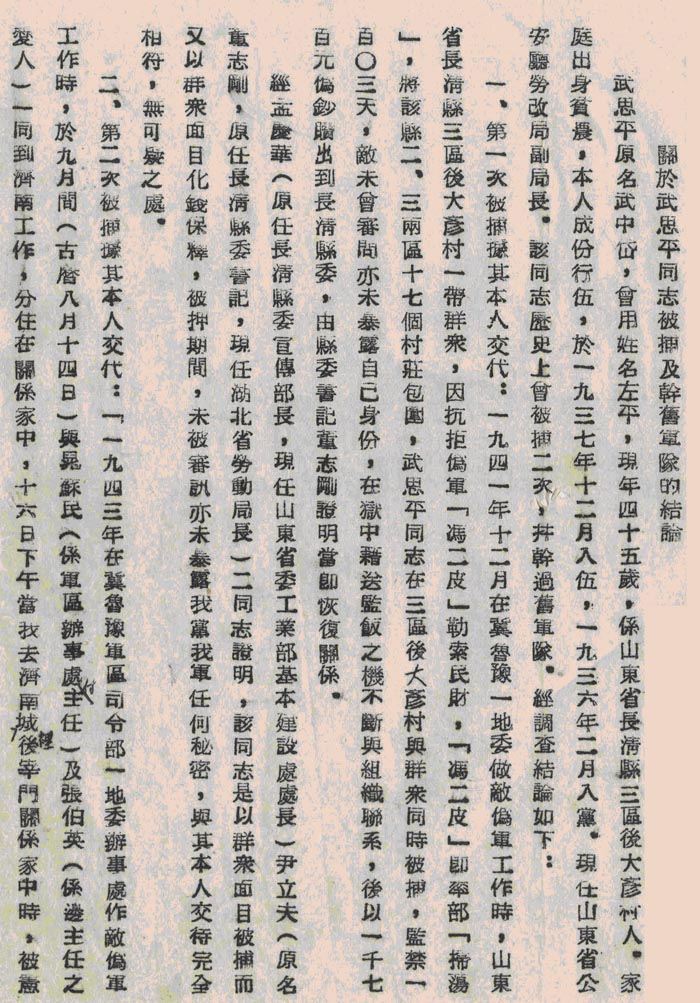 關於武思平同志被捕及幹舊軍隊的結論
武思平原名武中岱，曾用姓名左平，現年四十五歲，係山東省長清縣三區後大彥村人。家
庭出身貧農，本人成份行伍，於一九三七年十二月入伍，一九三六年二月入黨。現任山東省公
安廳勞改局副局長。該同志歷史上曾被捕二次，并幹過舊軍隊。經調查結論如下：
一、第一次被捕據其本人交代：一九四一年十二月在冀魯豫一地委做敵偽軍工作時，山東
省長清縣三區後大彥村一帶群衆，因抗拒偽軍「馮二皮」勒索民財，「馮二皮」即率部「掃湯
」，將該縣二、三兩區十七個村莊包圍，武思平同志在三區後大彥村與群衆同時被捕，監禁一
百〇三天，敵未曾審問亦未暴露自己身份，在獄中藉送監飯之機不斷與組織聯系，後以一千七
百元偽鈔贖出到長清縣委，由縣委書記董志剛證明當即恢復關係。
經孟慶華（原任長清縣委宣傳部長，現任山東省委工業部基本建設處處長）尹立夫（原名
董志剛，原任長清縣委書記，現任湖北省勞動局長）二同志證明，該同志是以群衆面目被捕而
又以群衆面目化錢保釋，被押期間，未被審訊亦未暴露我黨我軍任何秘密，與其本人交待完全
相符，無可疑之處。
二、第二次被捕據其本人交代：「一九四三年在冀魯豫軍區司令部一地委辦事處作敵偽軍
工作時，於九月間（古曆八月十四日）與晁蘇民（係軍區辦事處主任）及張伯英（係邊主任之
愛人）一同到濟南工作，分住在關係家中，十六日下午當我去濟南城後宰門關係家中時，被憲